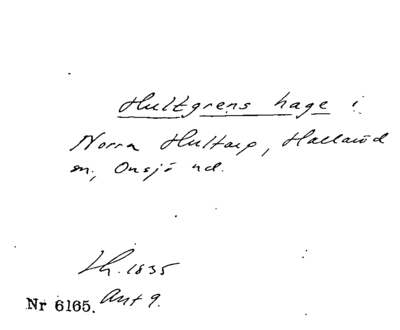 Hultgrens hage i
Norra Hultarp, Hallaröd
sn, Onsjö hd.
Lh. 1835
Ant 9.
Nr 6165.